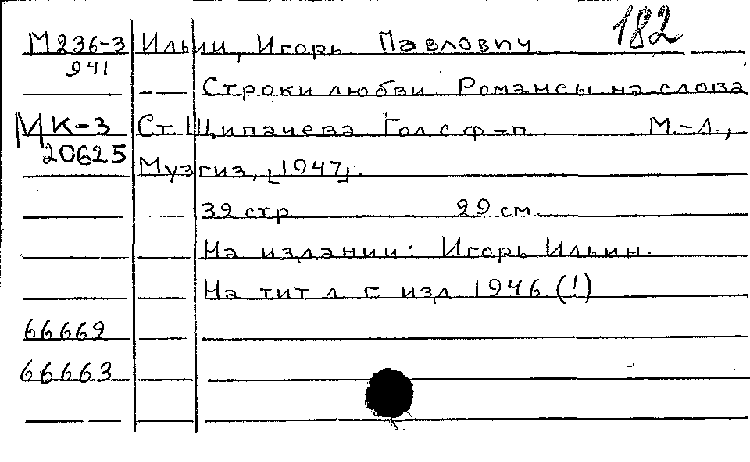 182
М236-3 Ильин, Игорь Павлович
941
Строки любви. Романсы на слова
МК-3 Ст. Щипачева. Гол с ф-п. М.-Л.,
20625
Музгиз, [1947].
32 стр. 29 см.
На издании: Игорь Ильин.
На тит л г изд 1946 (!)
66662
66663